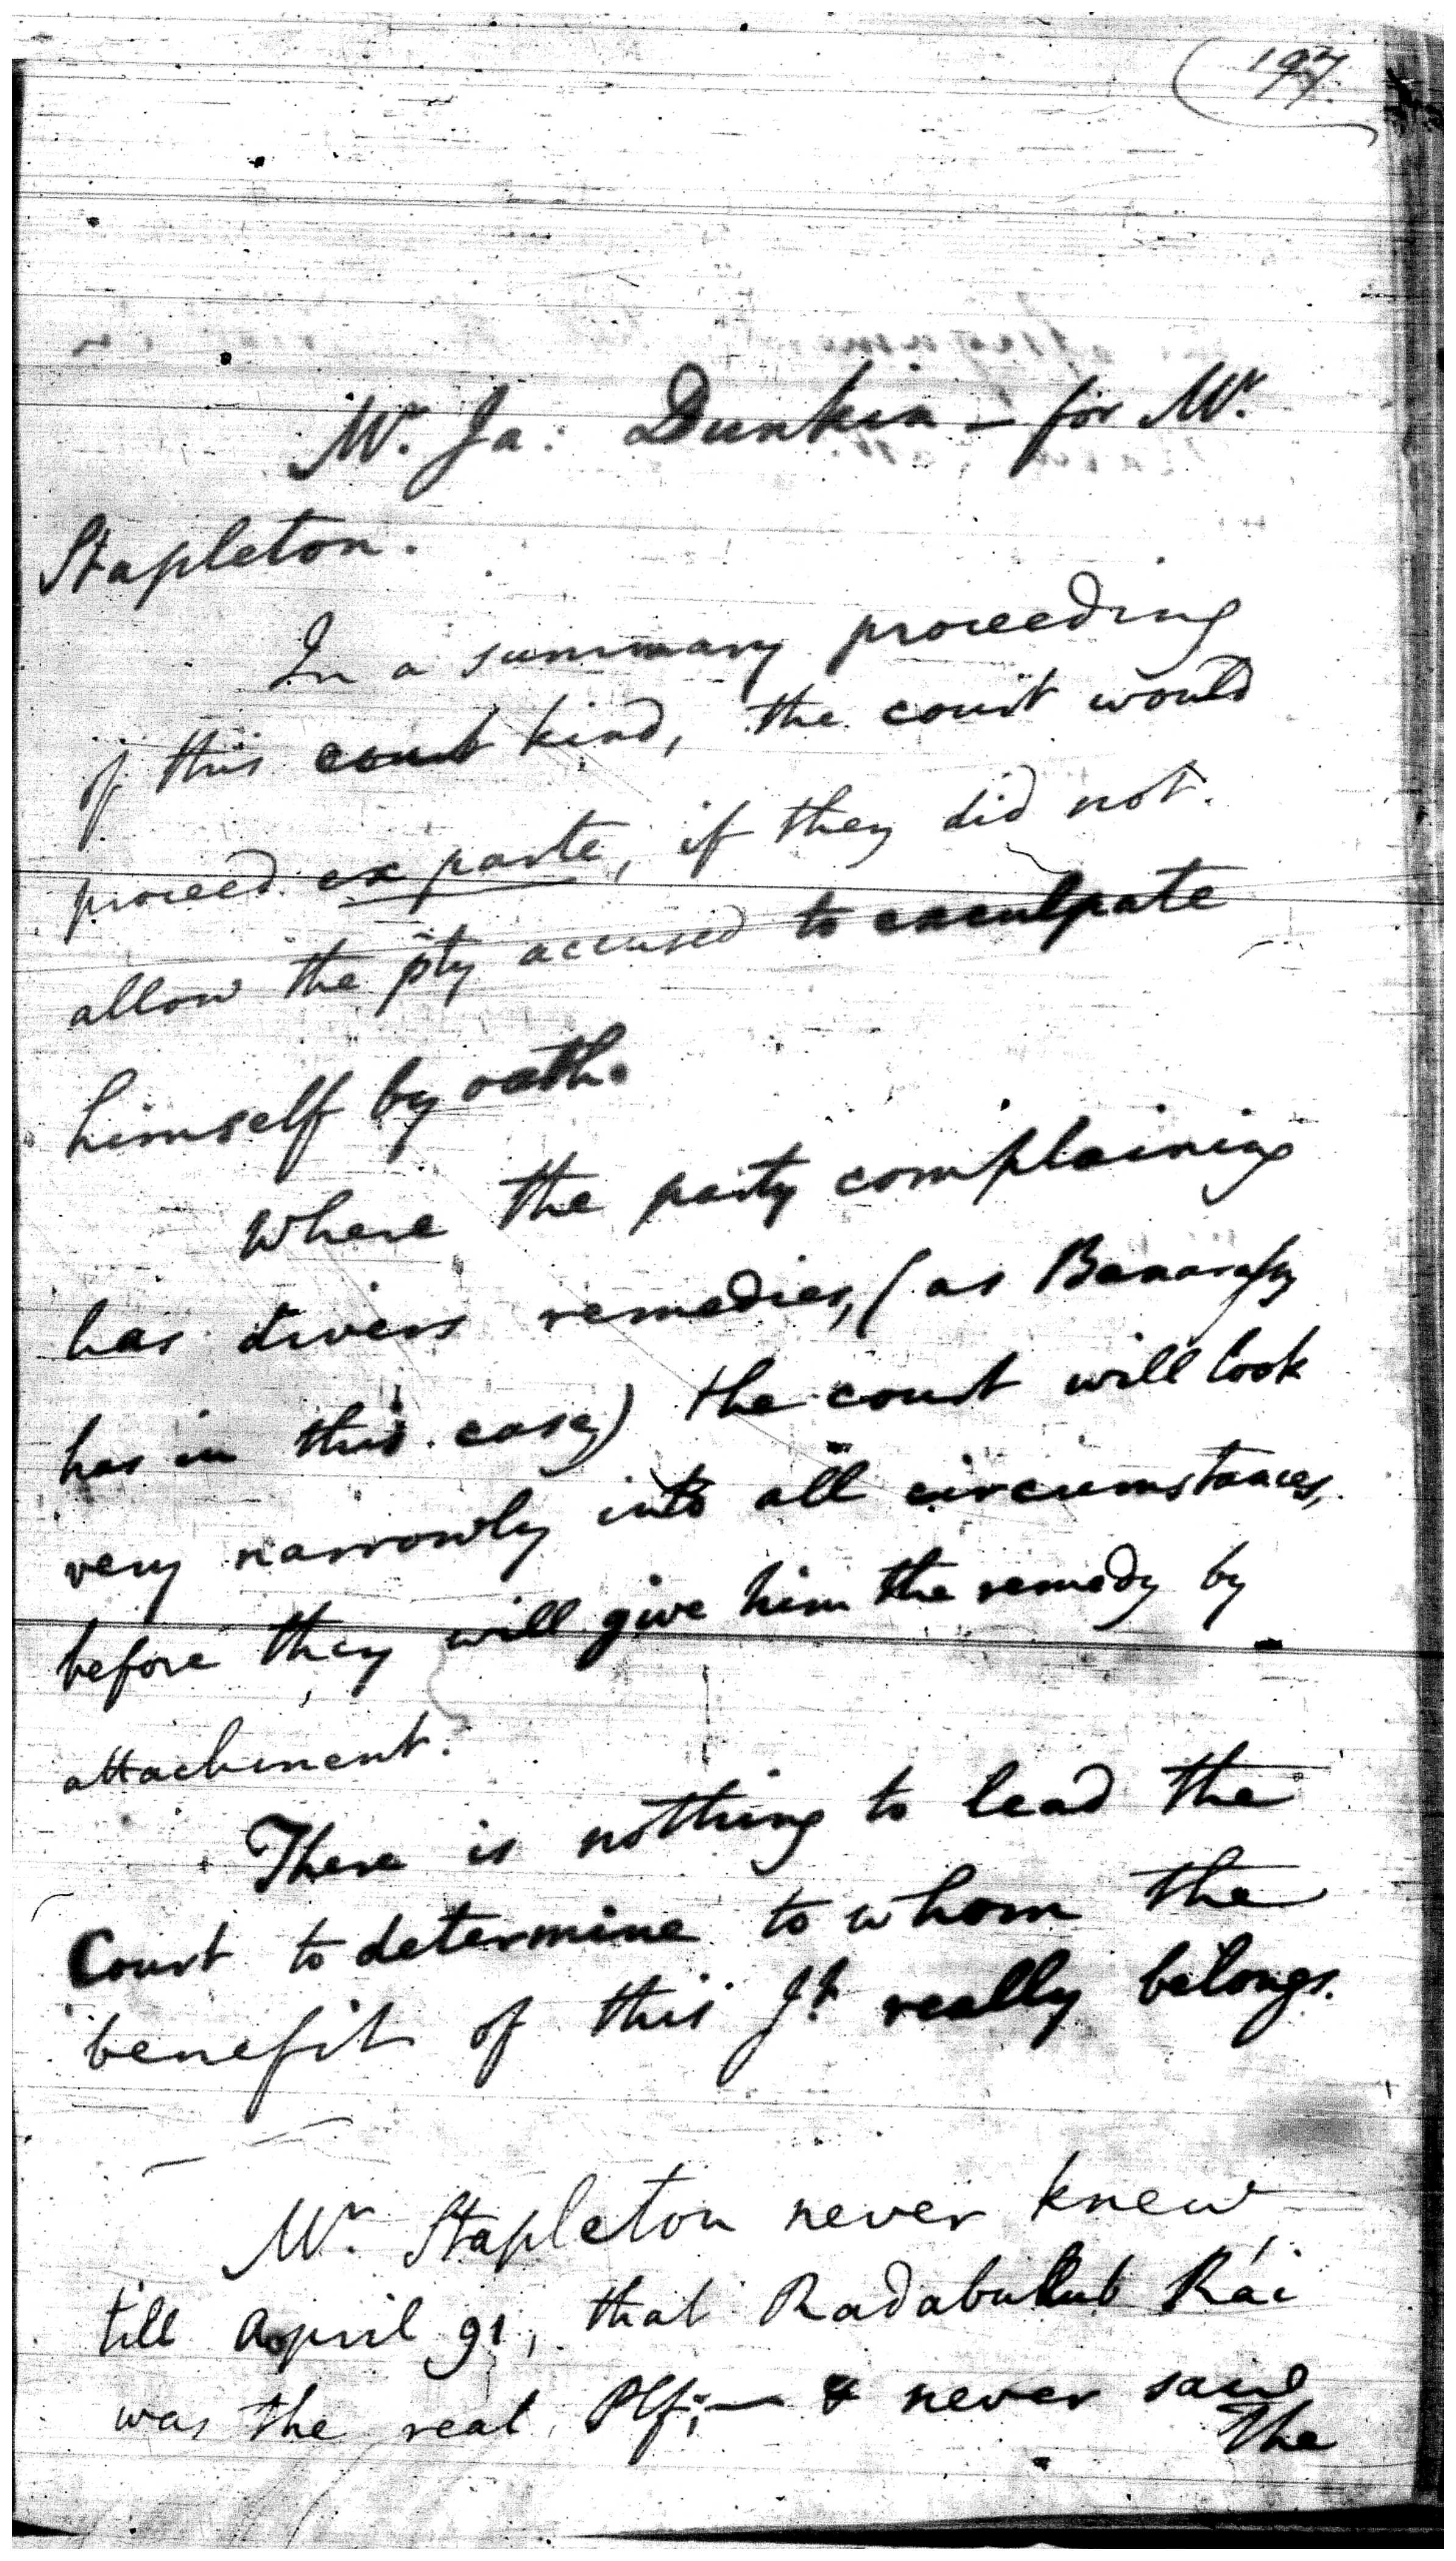 197
Mr. Ja: Dunkin – for Mr.
Stapleton.
In a summary proceeding
of this court kind, the court would
proceed ex parte, if they did not
allow the pty accused to exculpate
himself by oath.
Where the party complaining
has divers remedies, (as
has in this case) the court will look
very narrowly into all circumstances,
before they will give him the remedy by
attachment.
There is nothing to lead the
Court to determine to whom the
benefit of this Jt really belongs.
Mr. Stapleton never knew
till April 91, that Radabullub Rái
was the real Plf; — & never said
The